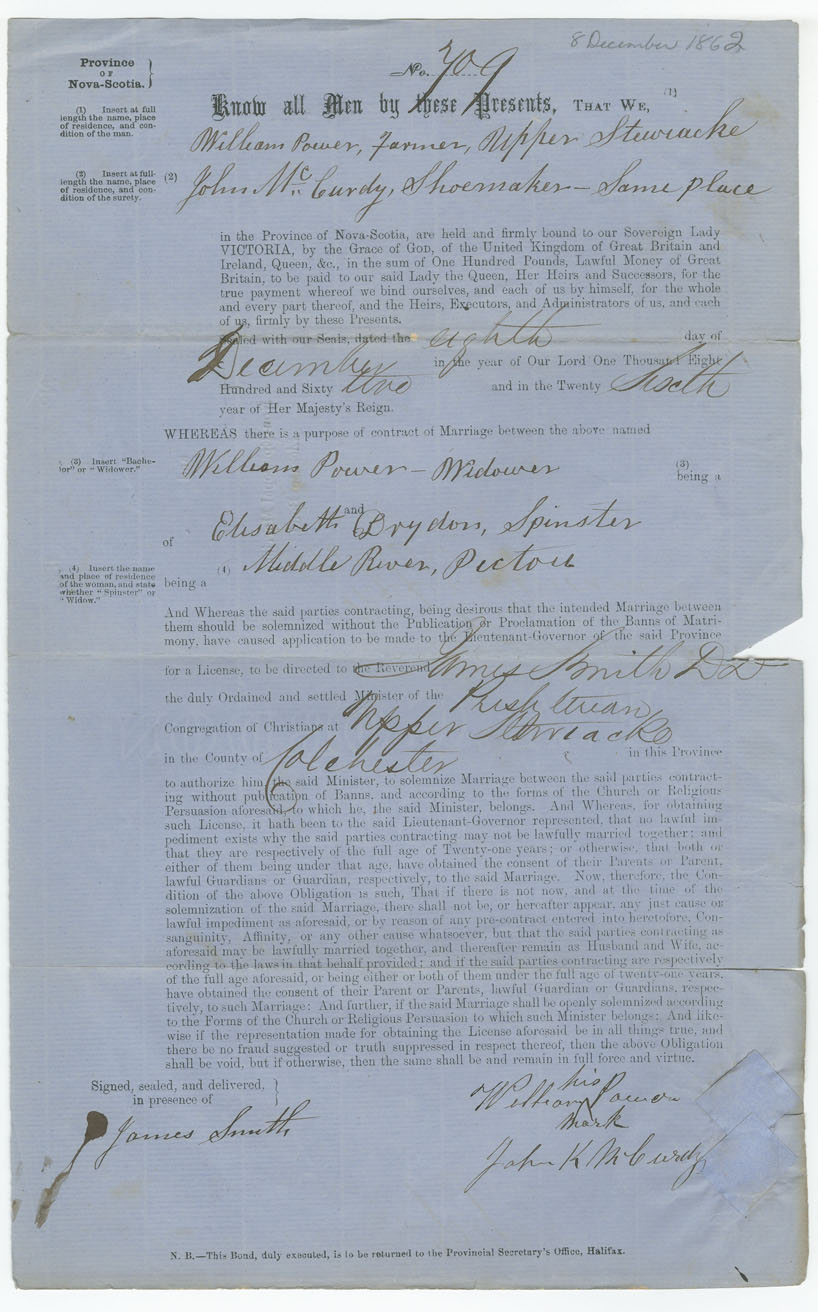 8 December 1862
Province
OF
Nova-Scotia.
No. 709
Know all Men by these Presents, THAT WE, (1)
(1) Insert at full
length the name, place
of residence, and con-
dition of the man.
William Power, Farmer, Upper Stewiacke
(2) Insert at full-
length the name, place
of residence, and con-
dition of the surety.
(2) John McCurdy, Shoemaker – Same place
in the Province of Nova-Scotia, are held and firmly bound to our Sovereign Lady
VICTORIA, by the Grace of God, of the United Kingdom of Great Britain and
Ireland, Queen, &c., in the sum of One Hundred Pounds, Lawful Money of Great
Britain, to be paid to our said Lady the Queen, Her Heirs and Successors, for the
true payment whereof we bind ourselves, and each of us by himself, for the whole
and every part thereof, and the Heirs, Executors, and Administrators of us, and each
of us, firmly by these Presents.
Sealed with our Seals, dated the eighth day of
December in the year of Our Lord One Thousand Eight
Hundred and Sixty two and in the Twenty Sixth
year of Her Majesty's Reign.
WHEREAS there is a purpose of contract of Marriage between the above named
(3) Insert "Bache-
lor" or "Widower."
William Power – Widower (3)
being a
and
Elisabeth Drydon, Spinster
of
(4) Middle River, Pictou
(4) Insert the name
and place of residence
of the woman, and state
whether "Spinster" or
"Widow."
being a
And Whereas the said parties contracting, being desirous that the intended Marriage between
them should be solemnized without the Publication or Proclamation of the Banns of Matri-
mony, have caused application to be made to the Lieutenant-Governor of the said Province
for a License, to be directed to the Reverend James Smith DD
the duly Ordained and settled Minister of the Presbyterian
Congregation of Christians at Upper Stewiacke
in the County of Colchester in this Province
to authorize him, the said Minister, to solemnize Marriage between the said parties contract-
ing without publication of Banns, and according to the forms of the Church or Religious
Persuasion aforesaid, to which he, the said Minister, belongs. And Whereas, for obtaining
such License, it hath been to the said Lieutenant-Governor represented, that no lawful im-
pediment exists why the said parties contracting may not be lawfully married together; and
that they are respectively of the full age of Twenty-one years; or otherwise, that both or
either of them being under that age, have obtained the consent of their Parents or Parent,
lawful Guardians or Guardian, respectively, to the said Marriage. Now, therefore, the Con-
dition of the above Obligation is such, That if there is not now, and at the time of the
solemnization of the said Marriage, there shall not be, or hereafter appear, any just cause or
lawful impediment as aforesaid, or by reason of any pre-contract entered into heretofore, Con-
sanguinity, Affinity, or any other cause whatsoever, but that the said parties contracting as
aforesaid may be lawfully married together, and thereafter remain as Husband and Wife, ac-
cording to the laws in that behalf provided; and if the said parties contracting are respectively
of the full age aforesaid, or being either or both of them under the full age of twenty-one years,
have obtained the consent of their Parent or Parents, lawful Guardian or Guardians, respec-
tively, to such Marriage: And further, if the said Marriage shall be openly solemnized according
to the Forms of the Church or Religious Persuasion to which such Minister belongs: And like-
wise if the representation made for obtaining the License aforesaid be in all things true, and
there be no fraud suggested or truth suppressed in respect thereof, then the above Obligation
shall be void, but if otherwise, then the same shall be and remain in full force and virtue.
Signed, sealed, and delivered,
in presence of
James Smith
his
William X Power
mark
John K McCurdy
N. B.—This Bond, duly executed, is to be returned to the Provincial Secretary's Office, Halifax.